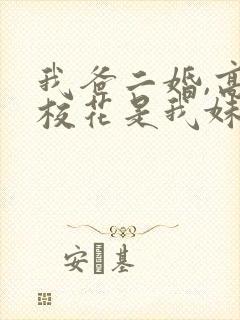 我爸二婚,高
校花是我妹
安 基